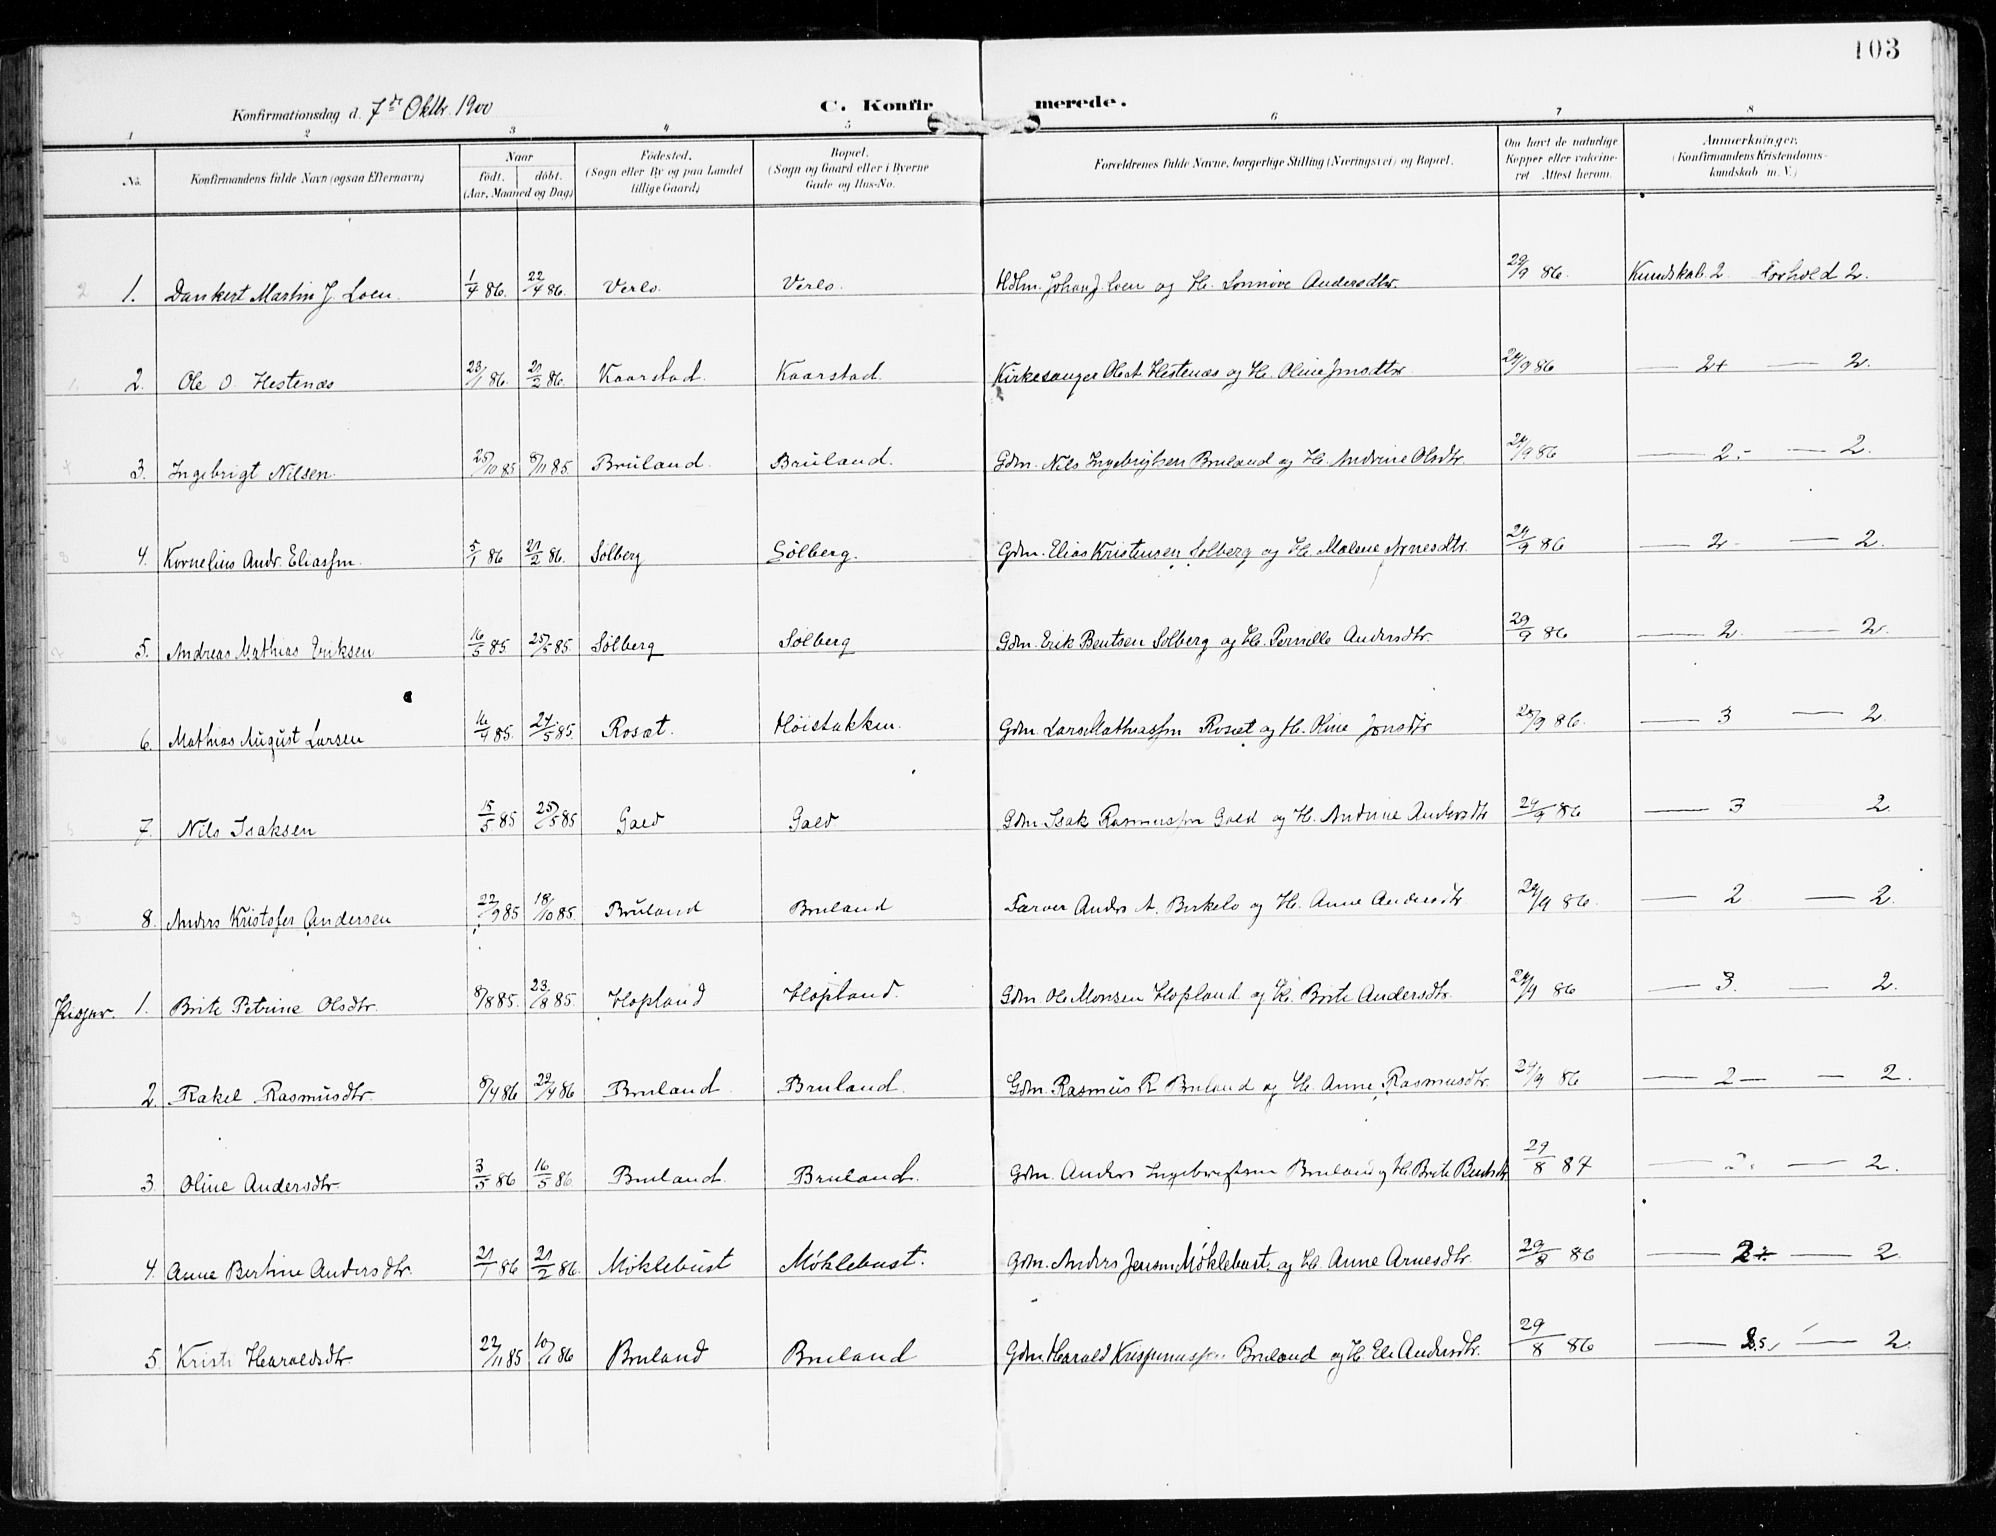 103
Konfirmationsdag d. 7de Oktbr. 1900
C. Konfirmerede.
1 2 3 4 5 6 7 8
No. Konfirmandens fulde Navn (ogsaa Efternavn) Naar født. døbt. (Aar, Maaned og Dag) Fødested. (Sogn eller By og paa Landet tillige Gaard) Bopæl. (Sogn og Gaard eller i Byerne Gade og Hus-No. Forældrenes fulde Navne, borgerlige Stilling (Næringsvei) og Bopæl. Om havt de naturlige Kopper eller vakcineret Attest herom. Anmærkninger. (Konfirmandens Kristendomskundskab m. V.)
1. Dankert Martin J. Loen. 1/4 86. 22/4 86. Verlo. Verlo. Hdm. Johan J. Loen og H. Sønnøve Andersdtr. 29/9 86. Kundskab 2 Forhold 2.
2. Ole O. Hestenæs 23/1 86. 21/2 86. Kaarstad. Kaarstad. Kirkesanger Ole A. Hestenæs og H. Oline Jensdtr 24/9 86 — 2+ — 2.
3. Ingebrigt Nilsen. 25/10 85 8/11 85. Bruland. Bruland. Gdm. Nils Ingebrigtsen Bruland og H. Andrine Olsdtr. 24/9 86 — 2- — 2.
4. Kornelius Andr. Eliassen. 5/1 86 21/2 86. Solberg Solberg. Gdm. Elias Kristensen Solberg og H. Malene Arnesdtr. 24/9 86 — 2- — 2.
5. Andreas Mathias Eriksen 16/5 85 25/5 85. Solberg Solberg Gdm. Erik Bentsen Solberg og H. Pernille Andersdtr 29/9 86 — 2. — 2.
6. Mathias August Larsen 16/4 85. 24/5 85. Rosæt. Høistakken. Gdm. Lars Mathiassen Rosæt og H. Oline Jonsdtr 28/9 86. — 3 — 2.
7. Nils Isaksen 15/5 85 25/5 85 Gald Gald Gdm. Isak Rasmussen Gald og H. Andrine Andersdtr 29/9 86 — 3 2.
8. Anders Kristofer Andersen 22/9 85 18/10 85. Bruland Bruland Farver Anders A. Birkelo og H. Anne Andersdtr 29/9 86. — 2 — 2.
Piger. 1. Brite Petrine Olsdtr. 8/8 85. 23/8 85. Hopland Hopland. Gdm. Ole Monsen Hopland og H. Brite Andersdtr. 24/9 86 — 3. — 2.
2. Rakel Rasmusdtr. 8/4 86 22/4 86 Bruland. Bruland. Gdm. Rasmus R Bruland og H. Anne Rasmusdtr. 29/9 86 — 2 — — 2.
3. Oline Andersdtr. 3/5 86 16/5 86 Bruland. Bruland. Gdm. Anders Ingebrigtsen Bruland og H. Brite Bentsdtr 29/8 87 — 2. — 2.
4. Anne Bertine Andersdtr. 21/1 86 21/2 86. Møklebust Møklebust. Gdm. Anders Jensen Møklebust. og H. Anne Arnesdtr. 29/8 86 — 2+ — 2.
5. Kristi Haraldsdtr 22/11 85 10/1 86 Bruland Bruland Gdm. Harald Bruland og H. Eli Andersdtr. 29/8 86 — 2.5 — 2.